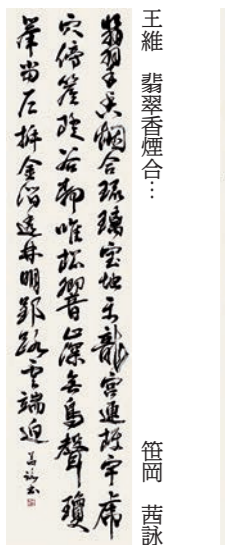 王維 翡翠香煙合… 笹岡 茜詠
翡翠香烟合琉璃宝地平龍宮連棟宇虎
穴傍簷楹谷静唯松響山深無鳥聲瓊
峯当戸坼金澗透林明郢路雲端迥 茜詠書